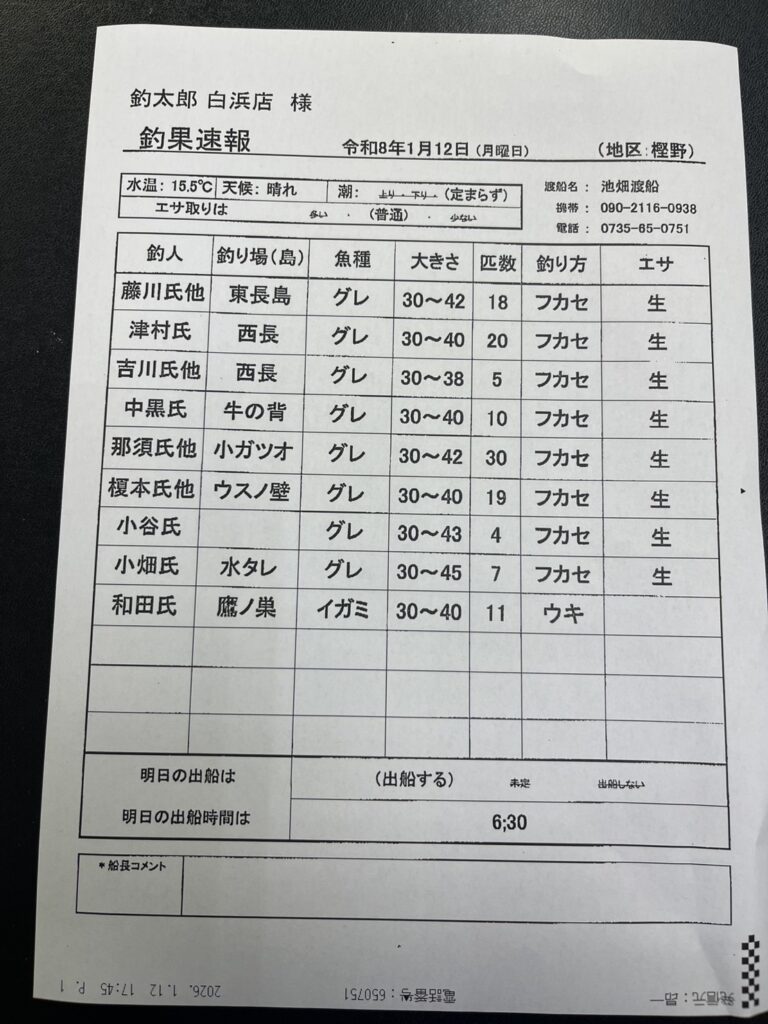 釣太郎 白浜店 様
釣果速報 令和8年1月12日(月曜日) (地区:樫野)
水温: 15.5℃ 天候: 晴れ 潮: 上り・下り・(定まらず)
エサ取りは 多い ・ (普通) ・ 少ない
渡船名: 池畑渡船
携帯: 090-2116-0938
電話: 0735-65-0751
釣人 釣り場(島) 魚種 大きさ 匹数 釣り方 エサ
藤川氏他 東長島 グレ 30〜42 18 フカセ 生
津村氏 西長 グレ 30〜40 20 フカセ 生
吉川氏他 西長 グレ 30〜38 5 フカセ 生
中黒氏 牛の背 グレ 30〜40 10 フカセ 生
那須氏他 小ガツオ グレ 30〜42 30 フカセ 生
榎本氏他 ウスノ壁 グレ 30〜40 19 フカセ 生
小谷氏 グレ 30〜43 4 フカセ 生
小畑氏 水タレ グレ 30〜45 7 フカセ 生
和田氏 鷹ノ巣 イガミ 30〜40 11 ウキ
明日の出船は (出船する) 未定 出船しない
明日の出船時間は 6;30
*船長コメント
発信元:昴一 電話番号:650751 2026. 1.12 17:45 P. 1